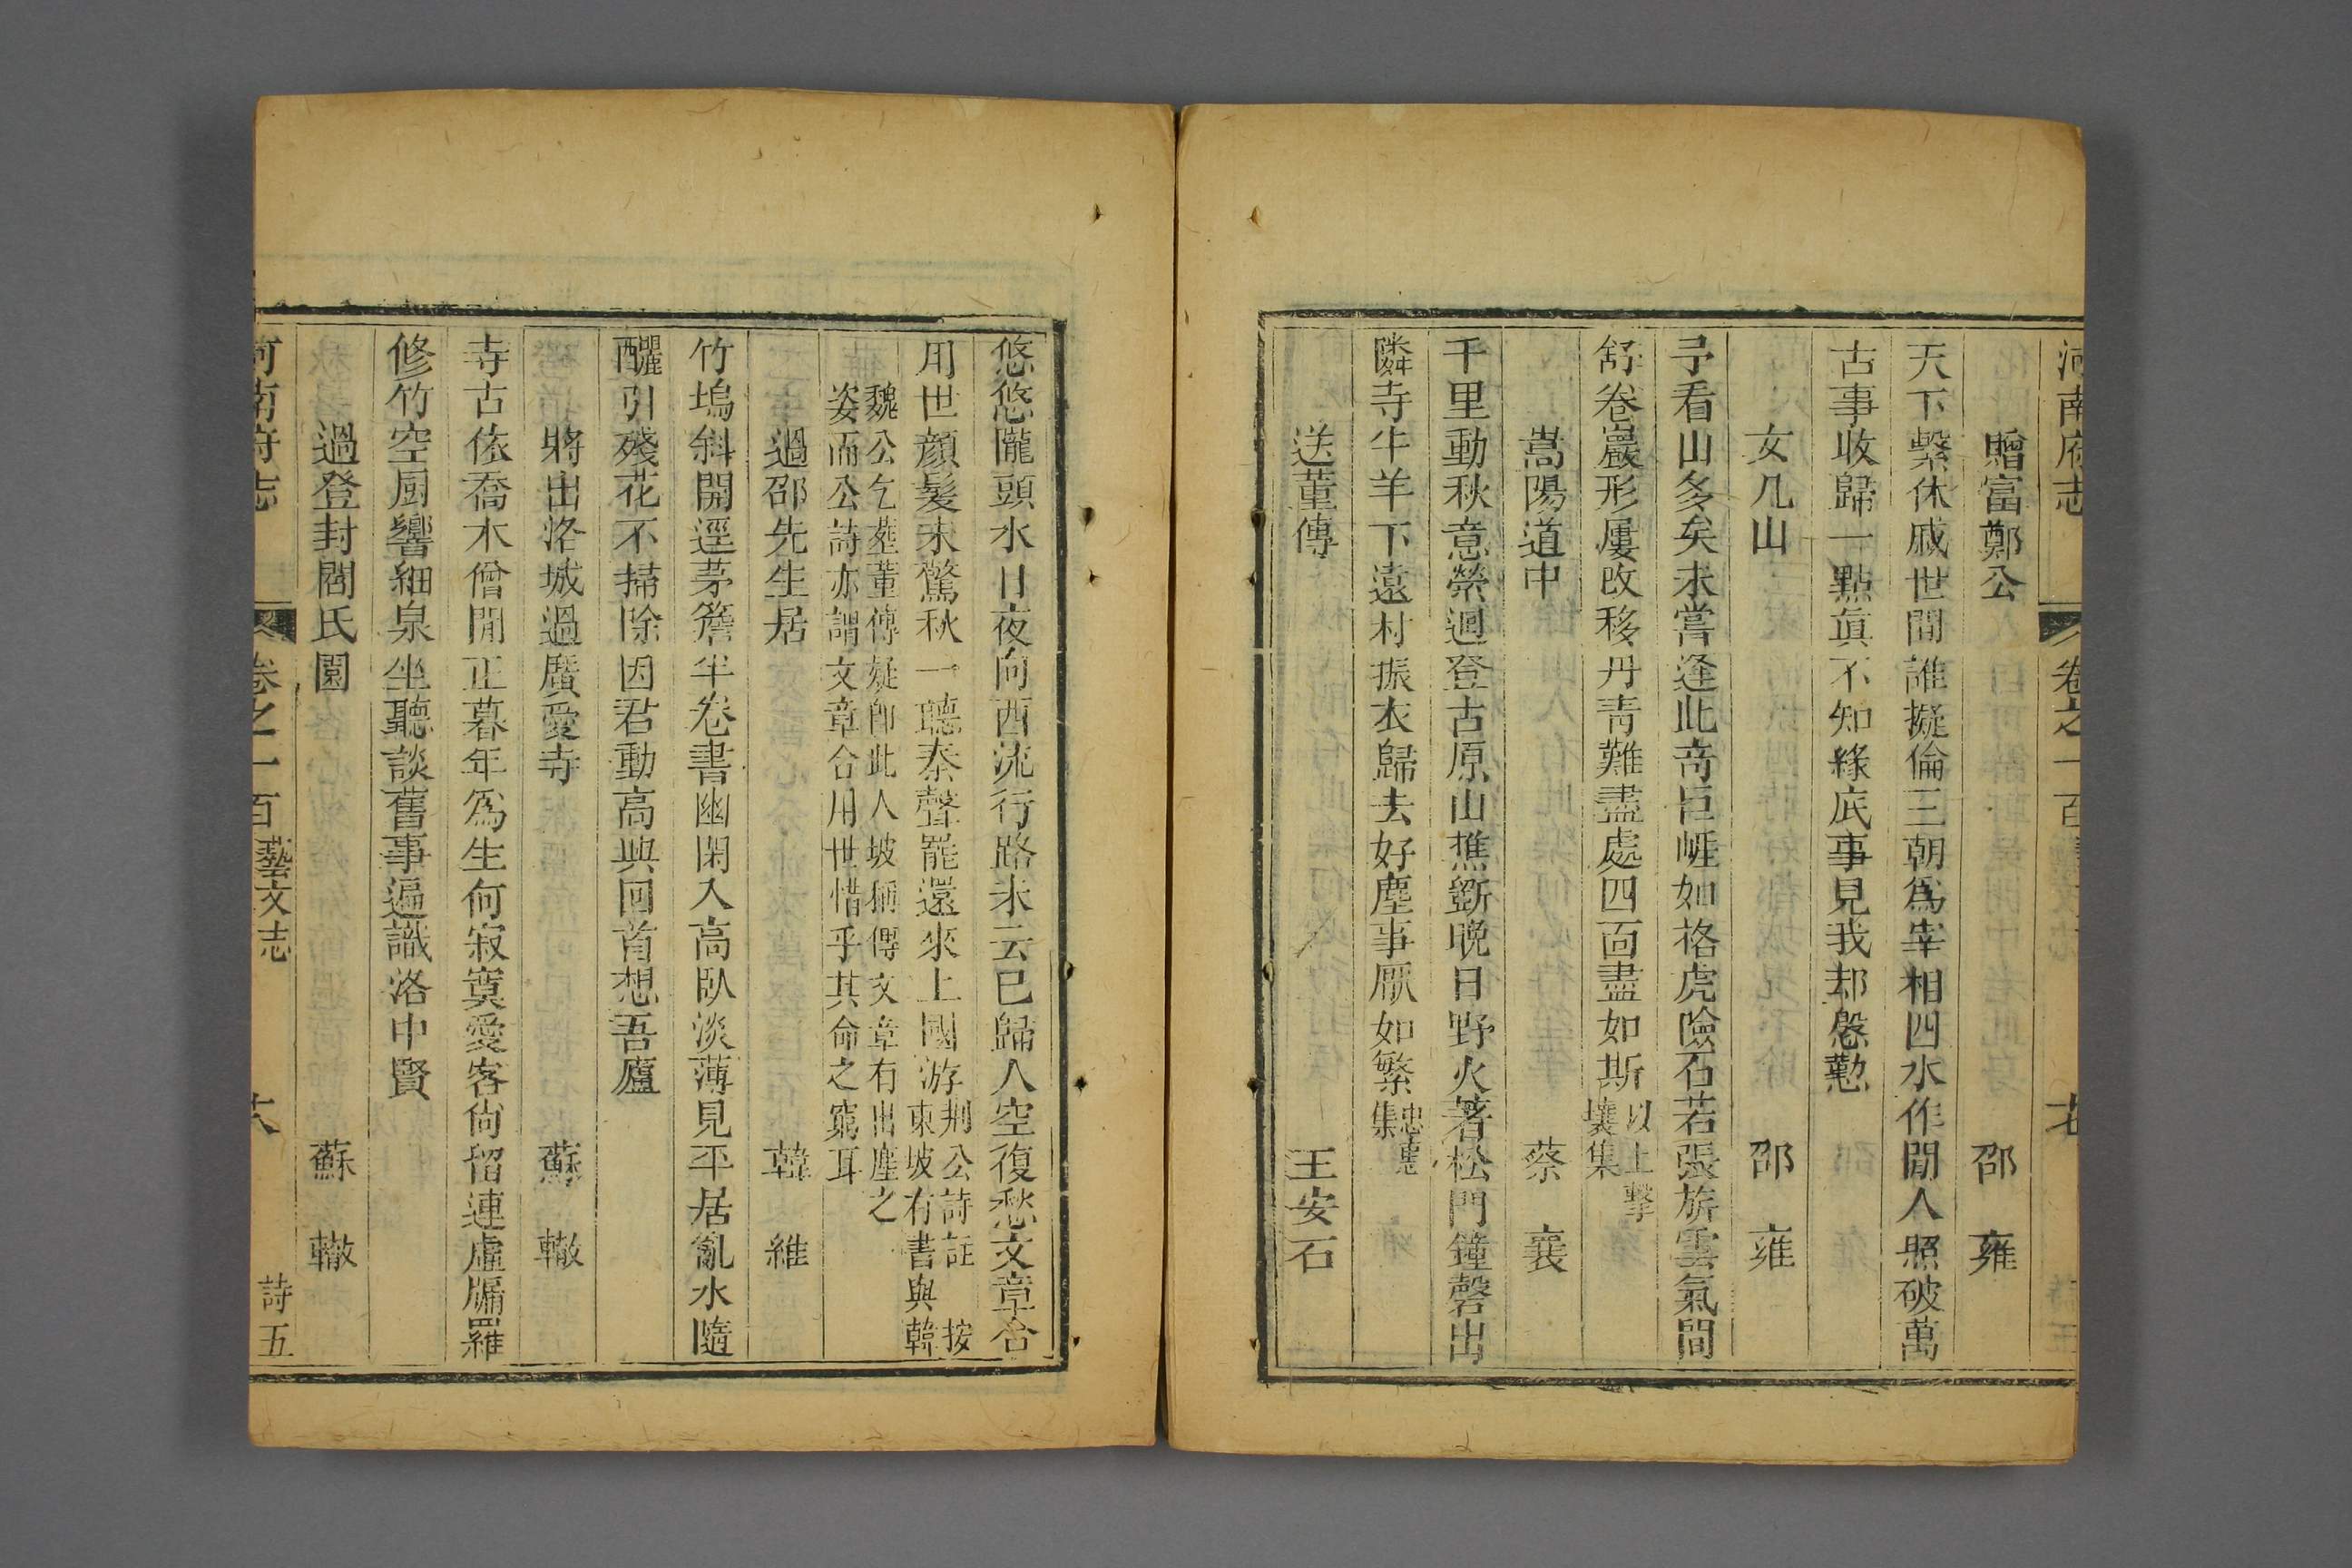 河南府志
卷之一百
贈富鄭公 邵 雍
天下繫休戚世間誰擬倫三朝爲宰相四水作閒人照破萬
古事收歸一點眞不知緣底事見我却慇懃
女几山 邵 雍
予看山多矣未嘗逢此奇巨崕如格虎險石若張旂雲氣間
舒卷巖形屢改移丹靑難盡處四面盡如斯以上擊
壤集
嵩陽道中 蔡 襄
千里動秋意縈迴登古原山樵斵晩日野火著松門鐘磬出
隣寺牛羊下遠村振衣歸去好塵事厭如繁忠惠
集
送董傳 王安石
悠悠隴頭水日夜向西流行路未云已歸人空復愁文章合
用世顔髮未驚秋一聽秦聲罷還來上國游荆公詩註 按
東坡有書與韓
魏公乞葬董傳疑卽此人坡稱傳文章有出塵之
姿而公詩亦謂文章合用世惜乎其命之窮耳
過邵先生居 韓 維
竹塢斜開逕茅簷半卷書幽閑入高臥淡薄見平居亂水隨
釃引殘花不掃除因君動高興回首想吾廬
將出洛城過廣愛寺 蘇 轍
寺古依喬木僧閒正暮年爲生何寂寞愛客尙留連虛牖羅
修竹空厨響細泉坐聽談舊事遍識洛中賢
過登封閻氏園 蘇 轍
河南府志
卷之一百藝文志
六
詩五